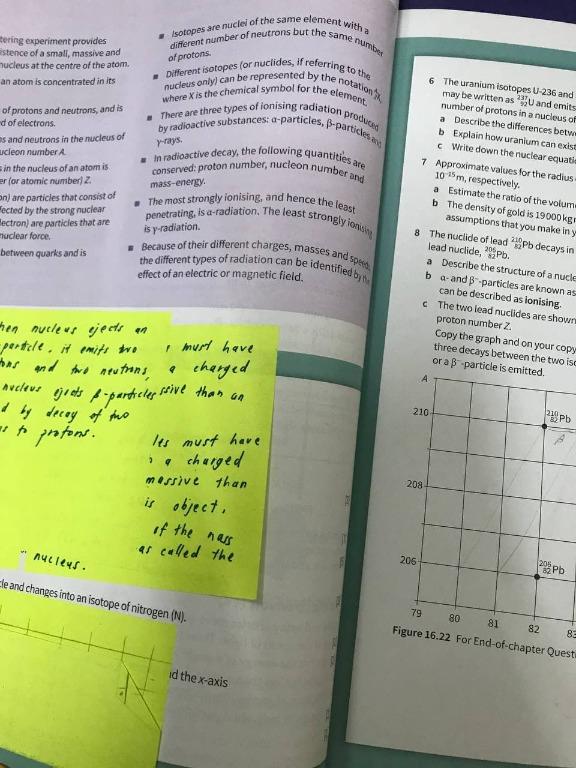 tering experiment provides
istence of a small, massive and
nucleus at the centre of the atom.
an atom is concentrated in its
of protons and neutrons, and is
d of electrons.
s and neutrons in the nucleus of
ucleon number A.
s in the nucleus of an atom is
er (or atomic number) Z.
on) are particles that consist of
fected by the strong nuclear
lectron) are particles that are
nuclear force.
between quarks and is
Isotopes are nuclei of the same element with a
different number of neutrons but the same number
of protons.
Different isotopes (or nuclides, if referring to the
nucleus only) can be represented by the notation X,
where X is the chemical symbol for the element.
There are three types of ionising radiation produced
by radioactive substances: α-particles, β-particles and
γ-rays.
In radioactive decay, the following quantities are
conserved: proton number, nucleon number and
mass–energy.
The most strongly ionising, and hence the least
penetrating, is α-radiation. The least strongly ionising
is γ-radiation.
Because of their different charges, masses and speeds,
the different types of radiation can be identified by the
effect of an electric or magnetic field.
hen nucleus ejects an
particle, it emits two
ons and two neutrons,
nucleus ejects β-particles
d by decay of two
s to protons.
must have
a charged
ssive than an
les must have
a charged
massive than
is object,
of the mass
as called the
nucleus.
cle and changes into an isotope of nitrogen (N).
nd the x-axis
6 The uranium isotopes U-236 and
may be written as 237 92 U and emits
number of protons in a nucleus of
a Describe the differences betw
b Explain how uranium can exist
c Write down the nuclear equati
7 Approximate values for the radius
10⁻¹⁵ m, respectively.
a Estimate the ratio of the volum
b The density of gold is 19000 kg
assumptions that you make in y
8 The nuclide of lead 210 82 Pb decays in
lead nuclide, 206 82 Pb.
a Describe the structure of a nucle
b α- and β⁻-particles are known as
can be described as ionising.
c The two lead nuclides are shown
proton number Z.
Copy the graph and on your copy
three decays between the two iso
or a β⁻-particle is emitted.
A
210
210 82 Pb
β
208
206
206 82 Pb
79 80 81 82 83
Figure 16.22 For End-of-chapter Questi